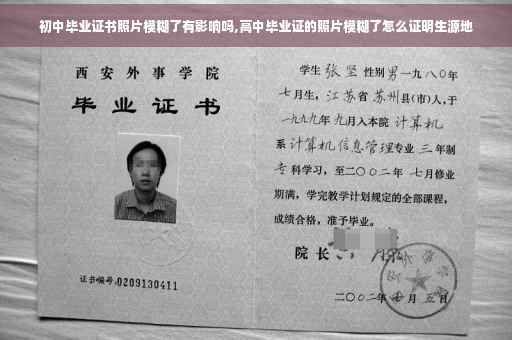 初中毕业证书照片模糊了有影响吗,高中毕业证的照片模糊了怎么证明生源地
西安外事学院
毕业证书
证书编号:0209130411
学生 张坚 性别 男 一九八〇年
七月生, 江苏省 苏州 县(市)人,于
一九九九年 九月入本院 计算机
系 计算机信息管理 专业 三 年制
专 科学习, 至二〇〇二年 七月修业
期满, 学完教学计划规定的全部课程,
成绩合格, 准予毕业。
院长
二〇〇二年 月 五日